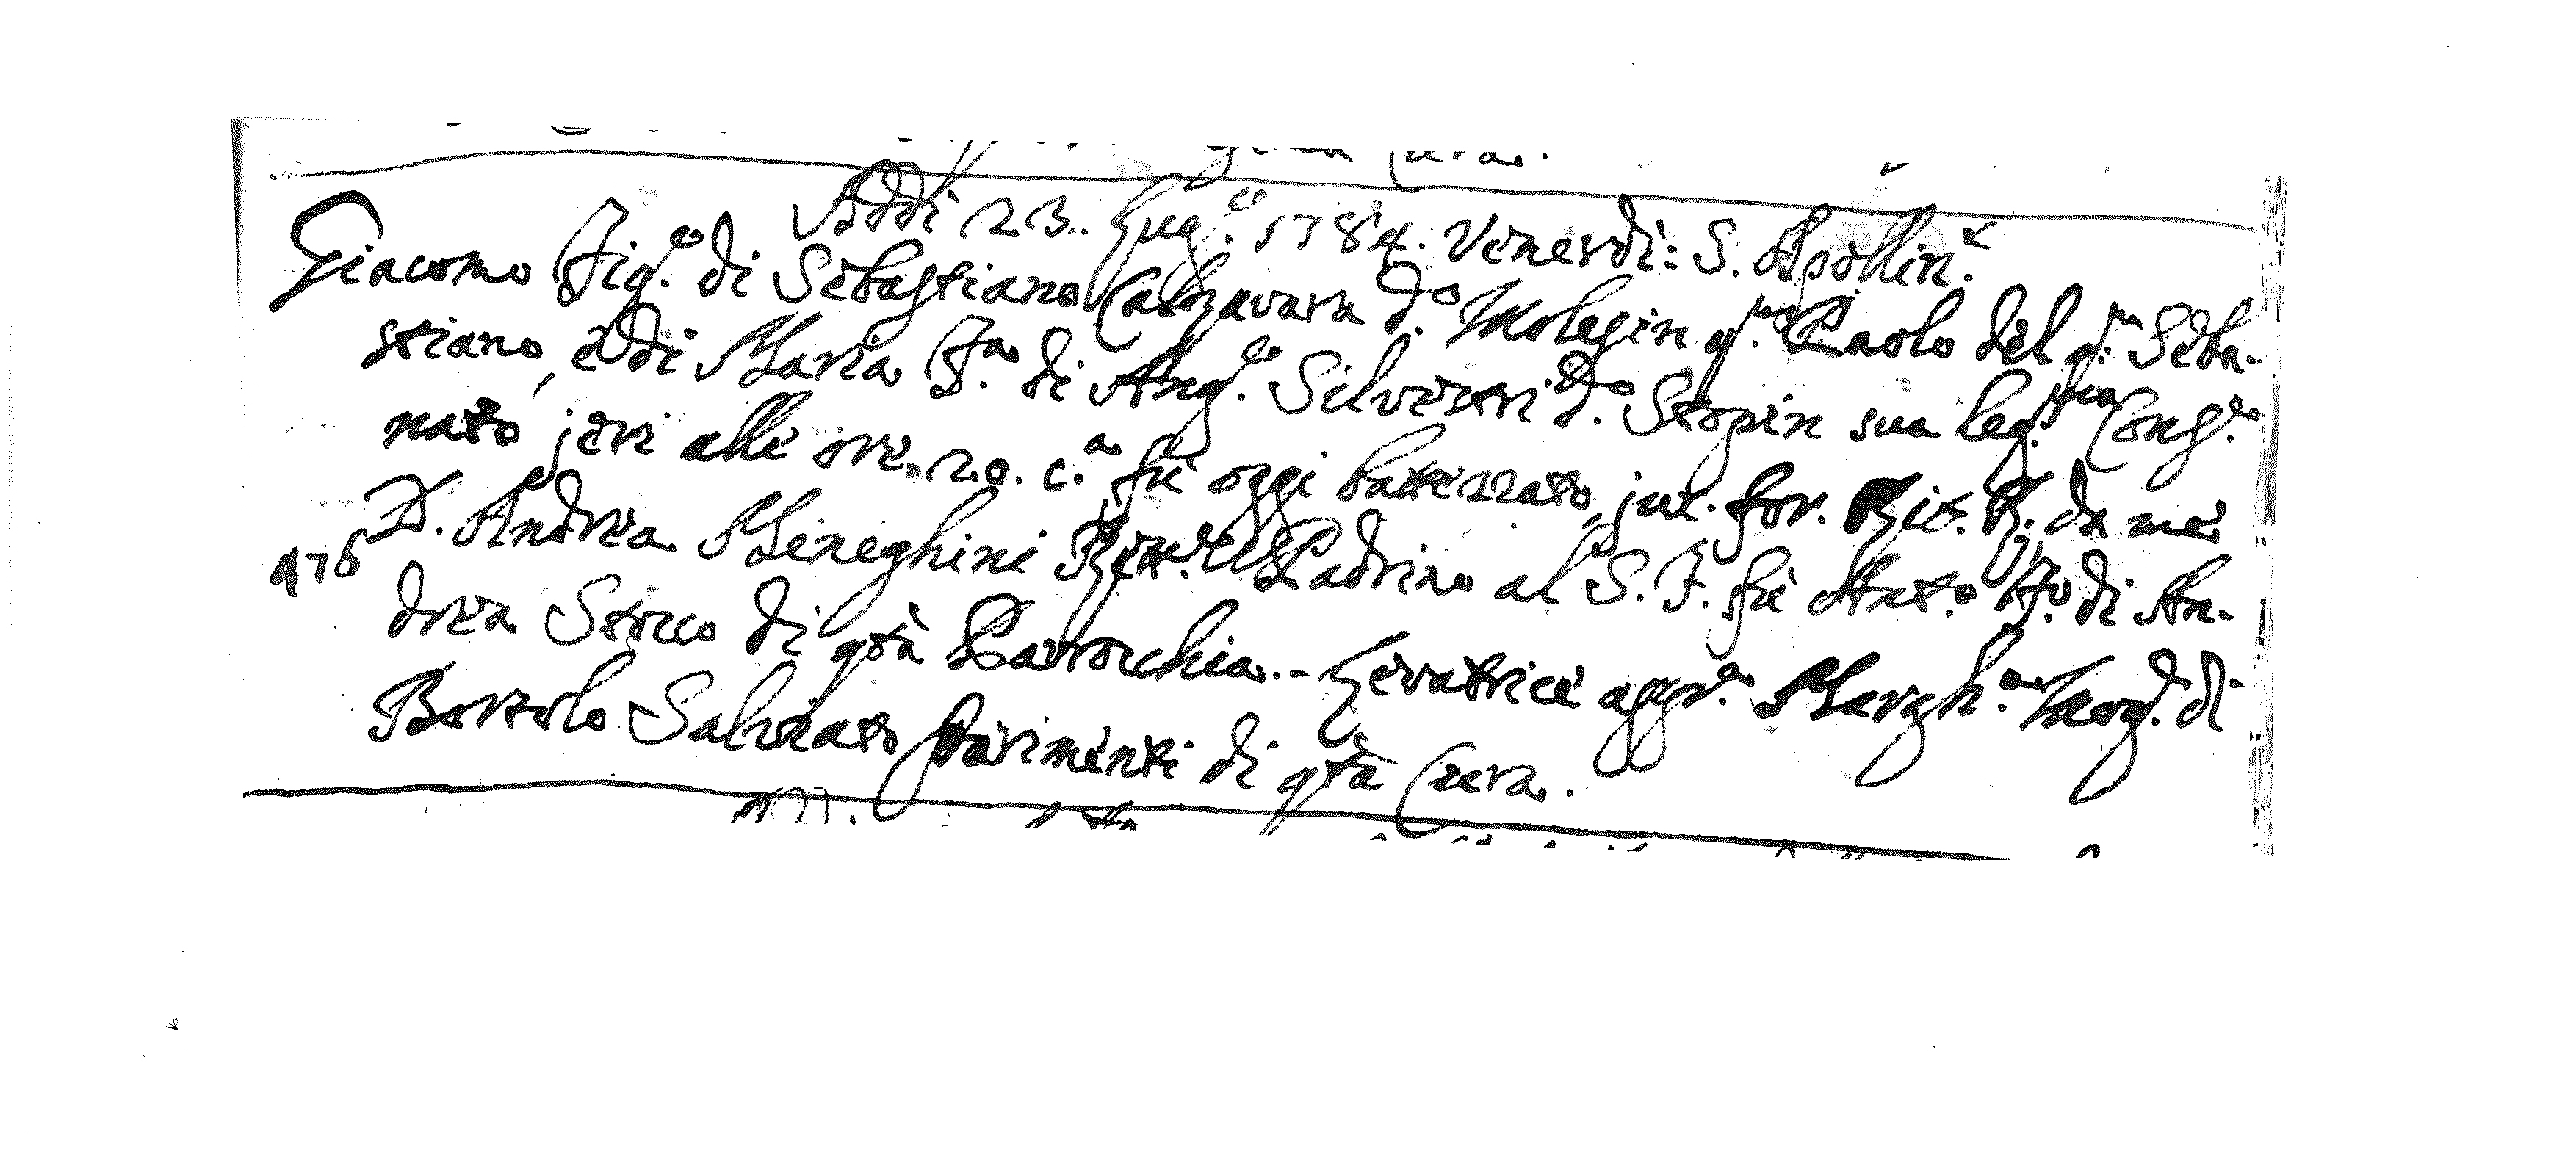 Addi 23. Lug.º 1784. Venerdì: S. Apollin.e
Giacomo Fig.º di Sebastiano Calzavara d.º Molesin q.m Paolo del q.m Seba-
stiano, e di Maria F.a di Ang.º Silvestri d.º Stopin sua leg.ma Cong.
nato jeri alle ore 20. c.a fù oggi battezzato jux. for. Rit. R. da me
D. Andrea Meneghini Ret.e Padrino al S. F. fù Ant.º F.º di An-
476
drea Stocco di qtà Parocchia.- Levatrice appr.a Margh.a Mog. di
Bortolo Salviato parimenti di qtà Cura.